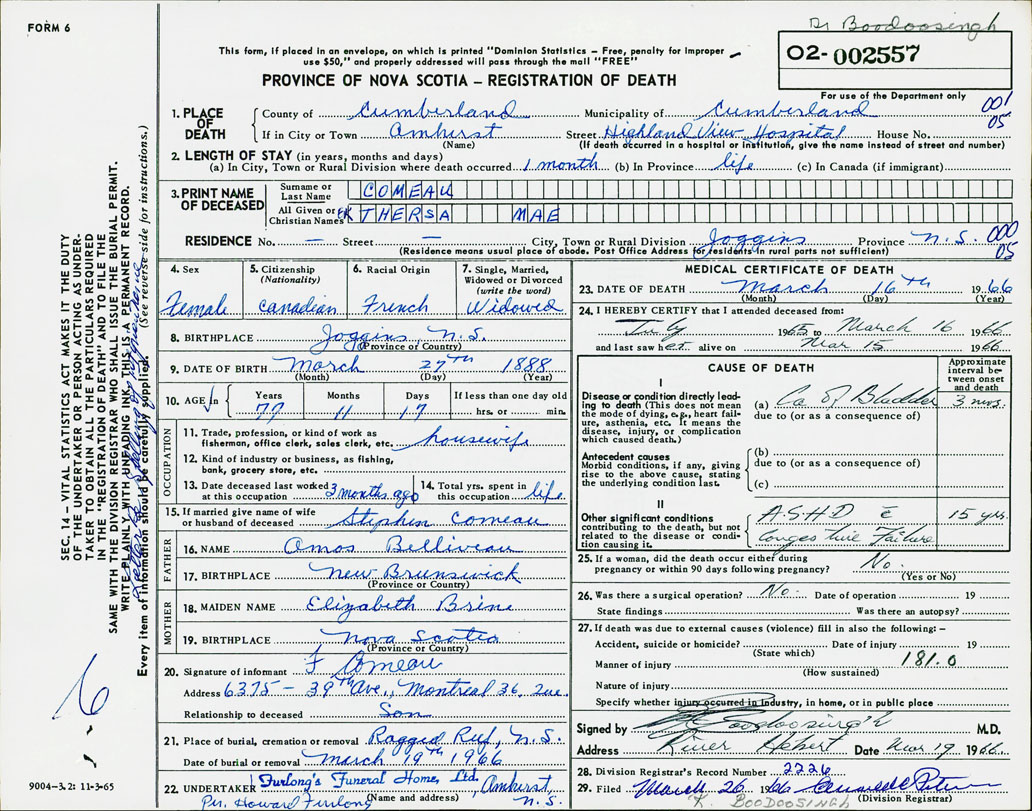 FORM 6
Dr Boodoosingh
This form, if placed in an envelope, on which is printed "Dominion Statistics – Free, penalty for improper
use $50," and properly addressed will pass through the mail "FREE"
02-002557
PROVINCE OF NOVA SCOTIA – REGISTRATION OF DEATH
For use of the Department only
001
05
1. PLACE OF DEATH County of Cumberland Municipality of Cumberland
If in City or Town Amherst Street Highland View Hospital House No.
(Name) (If death occurred in a hospital or institution, give the name instead of street and number)
2. LENGTH OF STAY (in years, months and days)
(a) In City, Town or Rural Division where death occurred 1 month (b) In Province life (c) In Canada (if immigrant)
3. PRINT NAME OF DECEASED
Surname or Last Name COMEAU
All Given or Christian Names THERSA MAE
RESIDENCE No. – Street – City, Town or Rural Division Joggins Province N.S. 000
05
(Residence means usual place of abode. Post Office Address for residents in rural parts not sufficient)
4. Sex
Female
5. Citizenship
(Nationality)
Canadian
6. Racial Origin
French
7. Single, Married,
Widowed or Divorced
(write the word)
Widowed
8. BIRTHPLACE Joggins N.S.
(Province or Country)
9. DATE OF BIRTH March 27th 1888
(Month) (Day) (Year)
10. AGE Years Months Days If less than one day old
77 11 17 hrs. or min.
OCCUPATION
11. Trade, profession, or kind of work as
fisherman, office clerk, sales clerk, etc. housewife
12. Kind of industry or business, as fishing,
bank, grocery store, etc.
13. Date deceased last worked
at this occupation 3 months ago
14. Total yrs. spent in
this occupation life
15. If married give name of wife
or husband of deceased Stephen Comeau
FATHER
16. NAME Amos Belliveau
17. BIRTHPLACE New Brunswick
(Province or Country)
MOTHER
18. MAIDEN NAME Elizabeth Brine
19. BIRTHPLACE Nova Scotia
(Province or Country)
20. Signature of informant F Comeau
Address 6375 – 39th Ave., Montreal 36, Que.
Relationship to deceased Son
21. Place of burial, cremation or removal Ragged Reef, N.S.
Date of burial or removal March 19th 1966
22. UNDERTAKER Furlong's Funeral Home, Ltd, Amherst, N.S.
(Name and address)
Per. Howard Furlong
MEDICAL CERTIFICATE OF DEATH
23. DATE OF DEATH March 16th 1966
(Month) (Day) (Year)
24. I HEREBY CERTIFY that I attended deceased from:
July 1965 to March 16 1966
and last saw her alive on Mar 15 1966
CAUSE OF DEATH
Approximate
interval be-
tween onset
and death
I
Disease or condition directly lead-
ing to death (This does not mean
the mode of dying, e.g., heart fail-
ure, asthenia, etc. It means the
disease, injury, or complication
which caused death.)
(a) Ca of Bladder 3 mos.
due to (or as a consequence of)
Antecedent causes
Morbid conditions, if any, giving
rise to the above cause, stating
the underlying condition last.
(b)
due to (or as a consequence of)
(c)
II
Other significant conditions
contributing to the death, but not
related to the disease or condi-
tion causing it.
A.S.H.D c̄ 15 yrs.
Congestive Failure
25. If a woman, did the death occur either during
pregnancy or within 90 days following pregnancy? No.
(Yes or No)
26. Was there a surgical operation? No. Date of operation 19
State findings Was there an autopsy?
27. If death was due to external causes (violence) fill in also the following: –
Accident, suicide or homicide? Date of injury 19
(State which)
Manner of injury 181.0
(How sustained)
Nature of injury
Specify whether injury occurred in Industry, in home, or in public place
Signed by Boodoosingh M.D.
Address River Hebert Date Mar 19 1966
28. Division Registrar's Record Number 2226
29. Filed March 26 1966
(Division Registrar)
BOODOOSINGH
SEC. 14 – VITAL STATISTICS ACT MAKES IT THE DUTY
OF THE UNDERTAKER OR PERSON ACTING AS UNDER-
TAKER TO OBTAIN ALL THE PARTICULARS REQUIRED
IN THE "REGISTRATION OF DEATH" AND TO FILE THE
SAME WITH THE DIVISION REGISTRAR WHO SHALL ISSUE THE BURIAL PERMIT.
WRITE PLAINLY, WITH UNFADING INK, THIS IS A PERMANENT RECORD.
Every item of information should be carefully supplied. (See reverse side for instructions.)
9004–3.2: 11-3-65